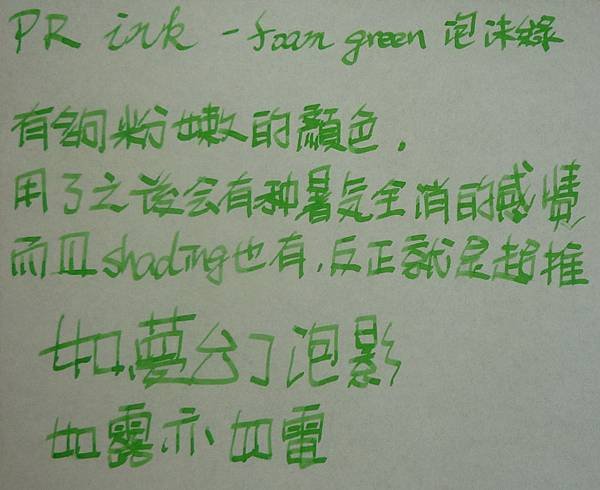 PR ink - foam green 泡沫綠
有夠粉嫩的顏色.
用了之後会有种暑気全消的感覺
而且shading也有.反正就是超推
如夢幻泡影
如露亦如電